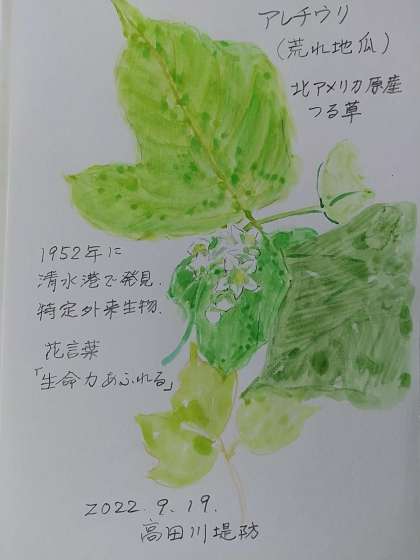 アレチウリ
（荒れ地瓜）
北アメリカ原産
つる草
1952年に
清水港で発見.
特定外来生物.
花言葉
「生命力あふれる」
2022.9.19.
高田川堤防